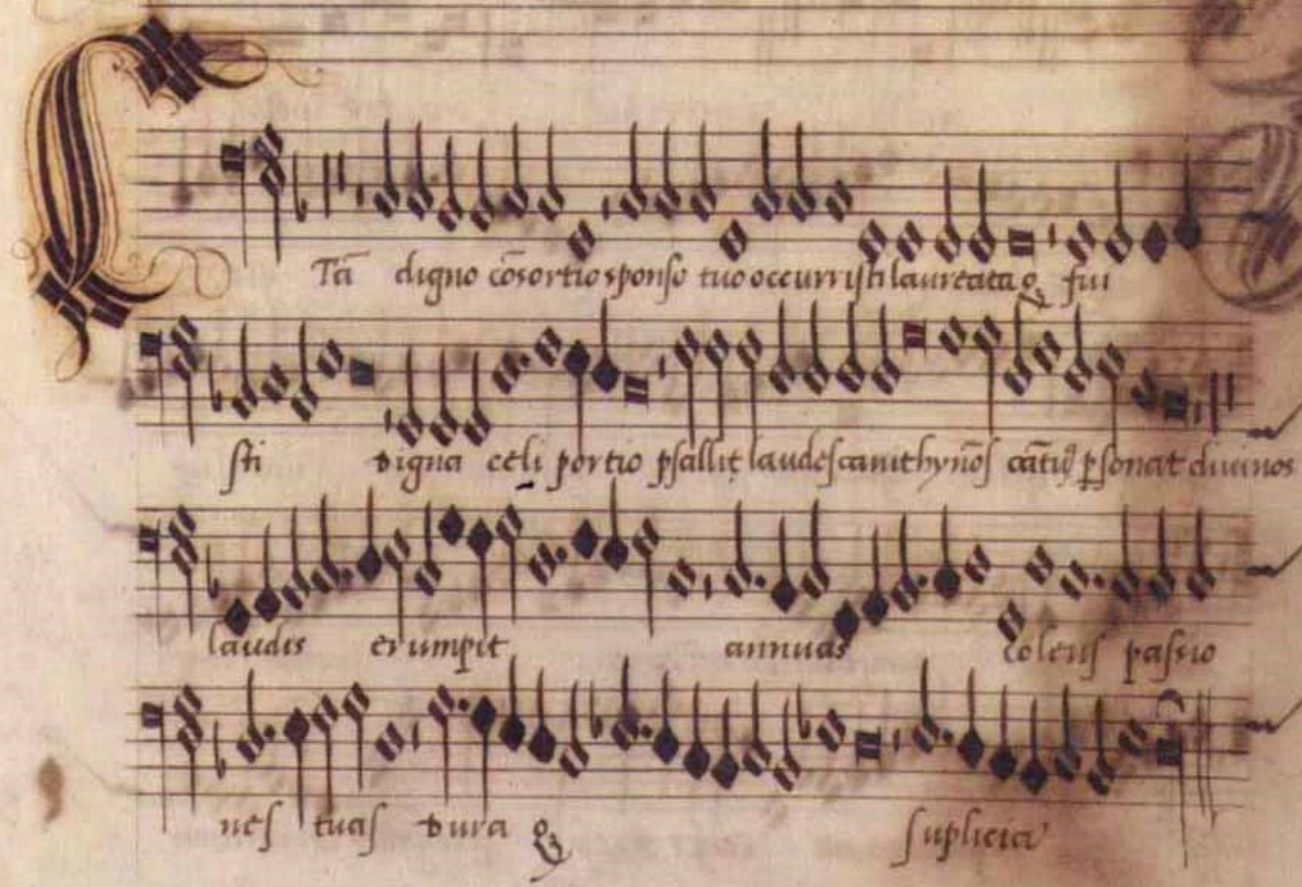 C Tā digno cōsortio sponso tuo occurristi laureata q; fui
sti digna celi portio psallit laudes canit hyños cātuq; psonat diuinos
laudis erumpit annuas colens passio
nes tuas dura q; suplicia